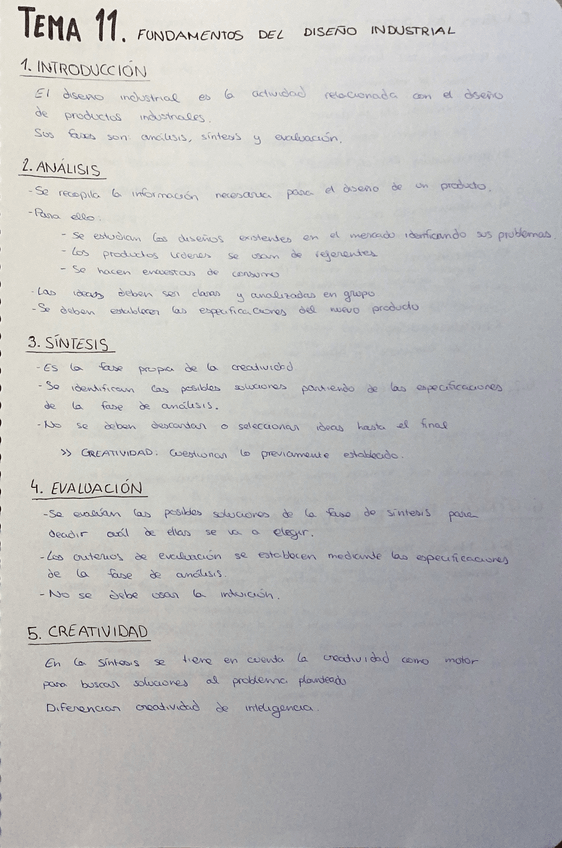 TEMA 11. FUNDAMENTOS DEL DISEÑO INDUSTRIAL
1. INTRODUCCIÓN
El diseño industrial es la actividad relacionada con el diseño
de productos industriales.
Sus fases son análisis, síntesis y evaluación.
2. ANÁLISIS
- Se recopila la información necesaria para el diseño de un producto.
- Para ello:
- Se estudian los diseños existentes en el mercado identificando sus problemas
- Los productos líderes se usan de referentes
- Se hacen encuestas de consumo
- Las ideas deben ser claras y analizadas en grupo
- Se deben establecer las especificaciones del nuevo producto
3. SÍNTESIS
- Es la fase propia de la creatividad
- Se identifican las posibles soluciones partiendo de las especificaciones
de la fase de análisis.
- No se deben descartar o seleccionar ideas hasta el final
>> CREATIVIDAD: Cuestionar lo previamente establecido.
4. EVALUACIÓN
- Se evalúan las posibles soluciones de la fase de síntesis para
decidir cuál de ellas se va a elegir.
- Los criterios de evaluación se establecen mediante las especificaciones
de la fase de análisis.
- No se debe usar la intuición.
5. CREATIVIDAD
En la síntesis se tiene en cuenta la creatividad como motor
para buscar soluciones al problema planteado
Diferenciar creatividad de inteligencia.